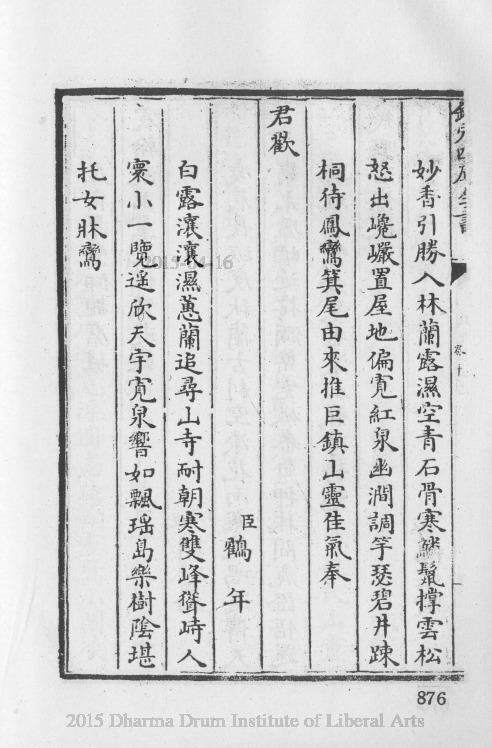 欽定四庫全書
卷十
妙香引勝入林蘭露濕空青石骨寒鬣撐雲松
怒出巉巗置屋地偏寛紅泉幽澗調竽瑟碧井踈
桐待鳳鸞箕尾由來推巨鎮山靈佳氣奉
君歡
臣鶴年
白露瀼瀼濕蕙蘭追尋山寺耐朝寒雙峰聳峙人
寰小一覽遥欣天宇寛泉響如飄瑶島樂樹隂堪
托女牀鸞
2015-04-16
876
2015 Dharma Drum Institute of Liberal Arts